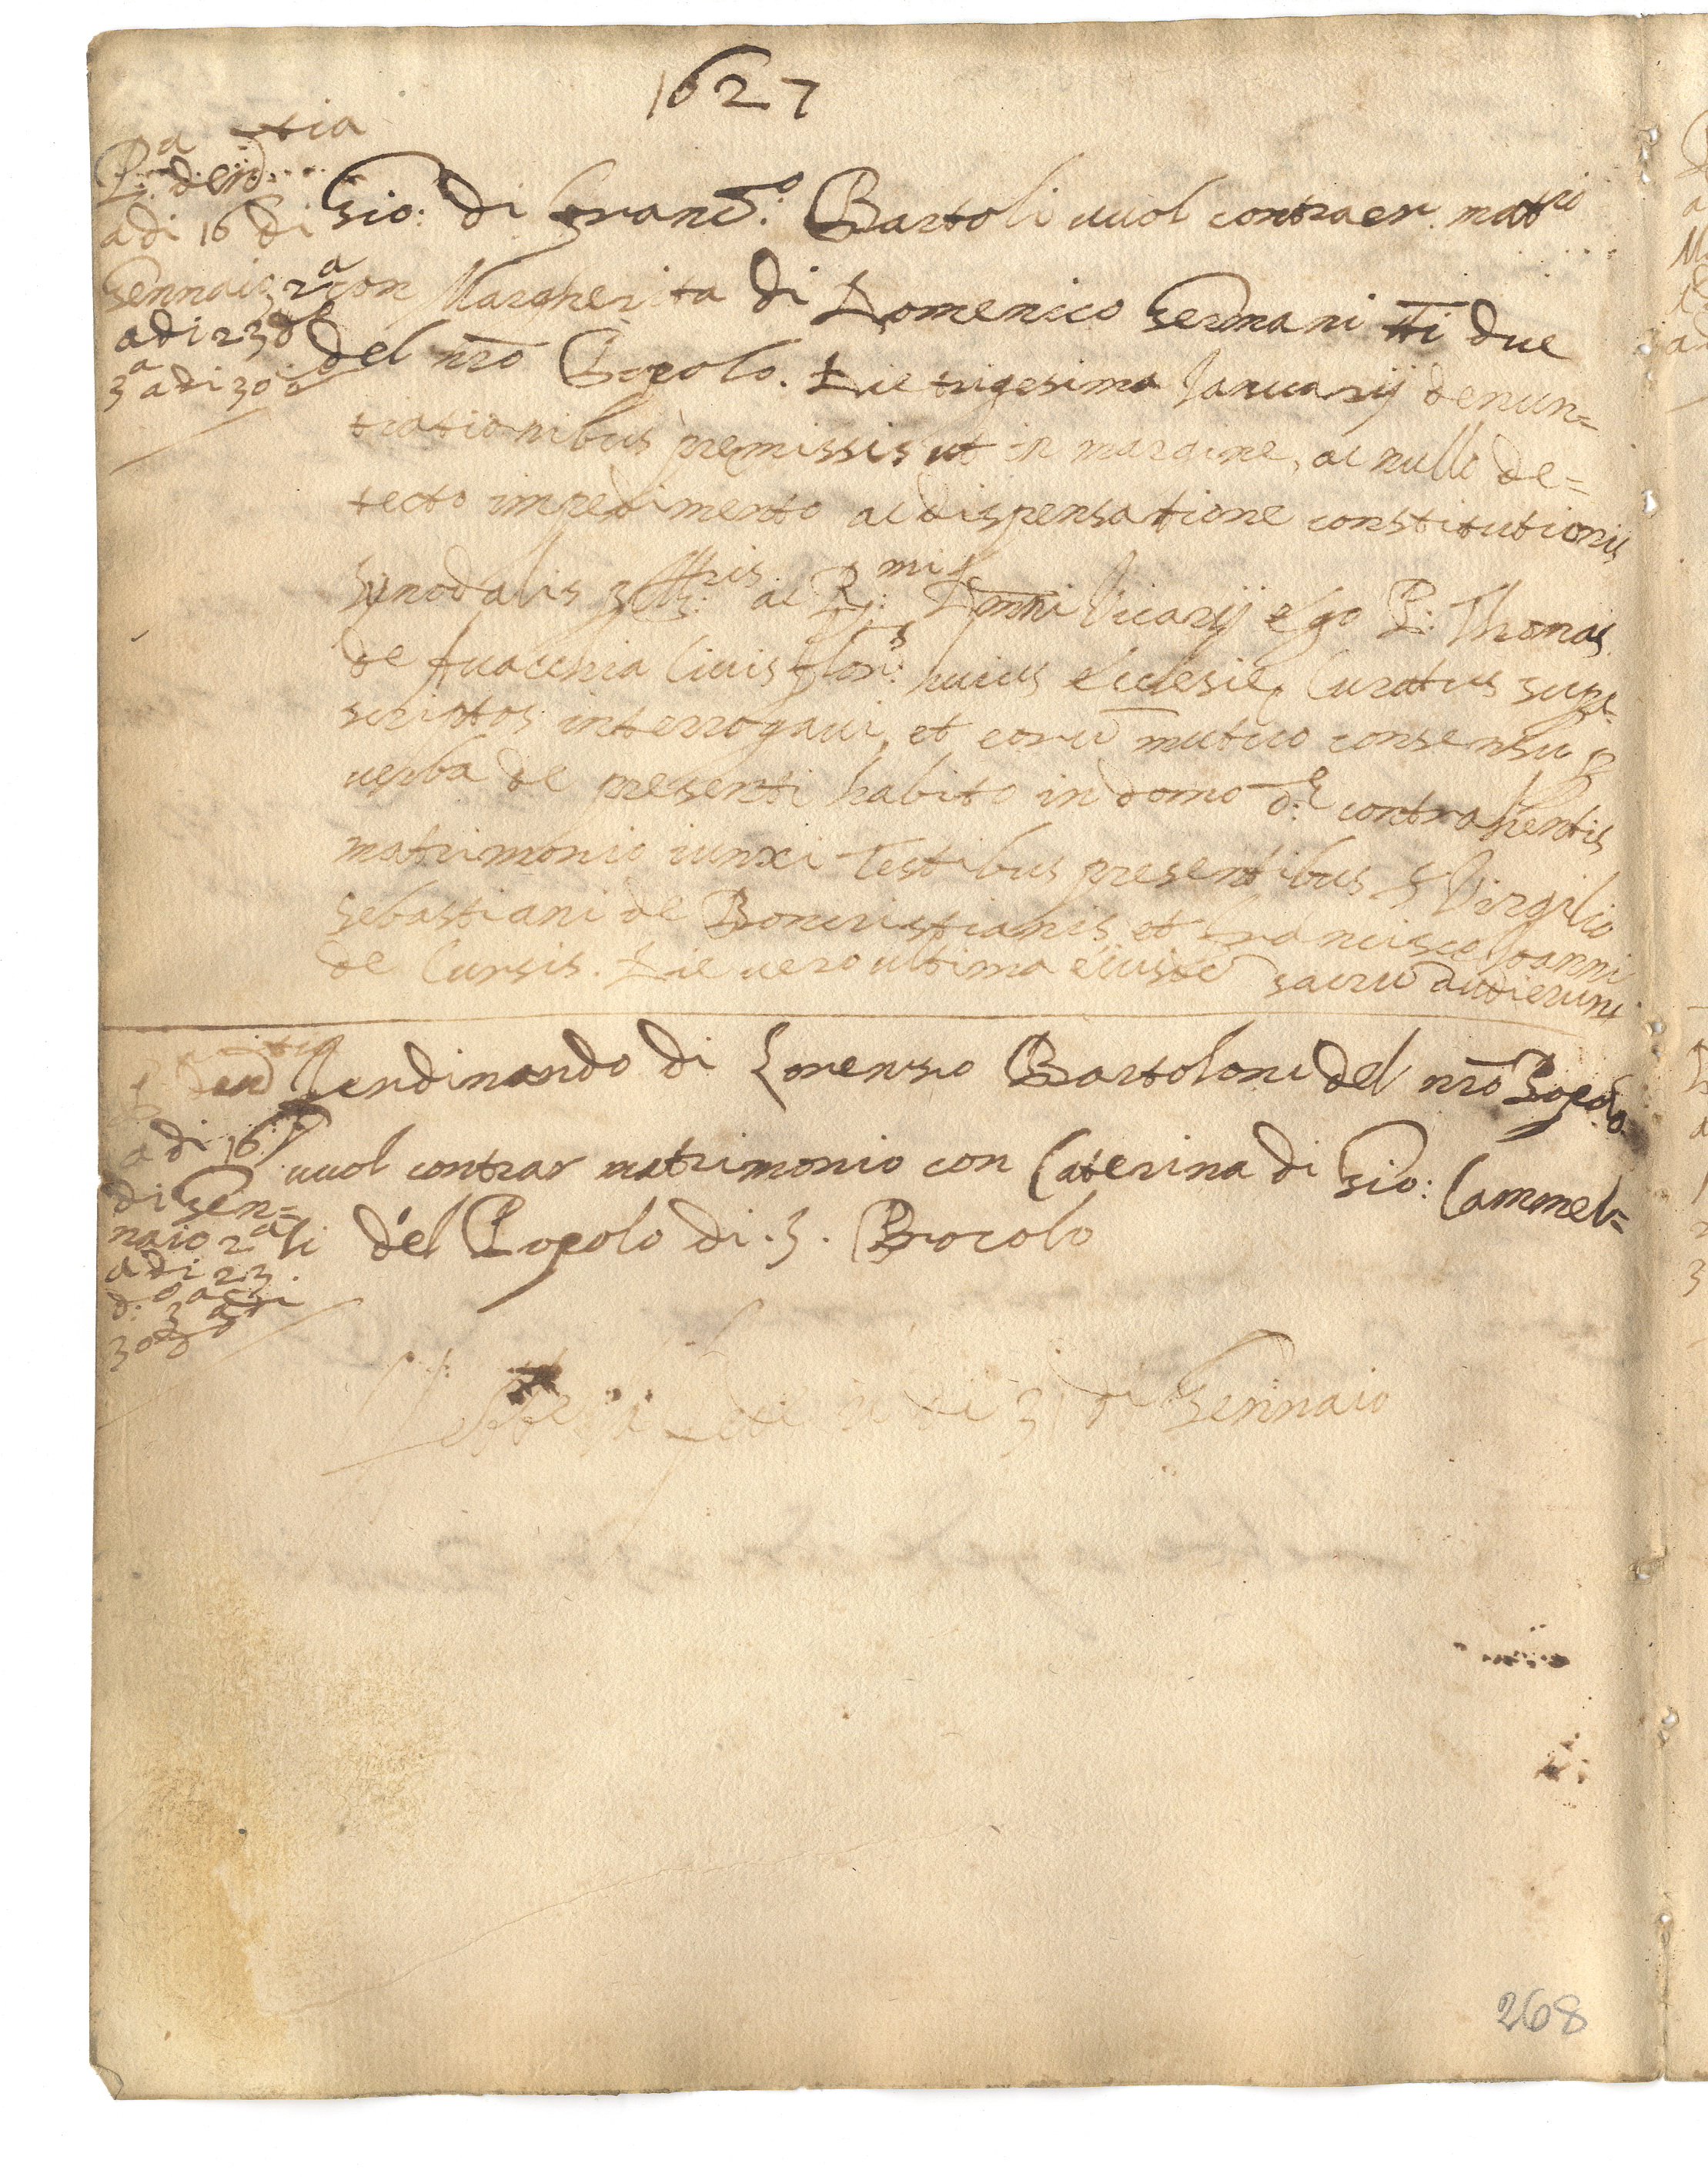 1627
P.a den.tia
adi 16 di
Gennaio 2a
adi 23 d.o
3a adi 30 d.o
Gio: di Franc.o Bartoli vuol contraer. mat.rio
con Margherita di Domenico Germani tti due
del nro Popolo. Die trigesima Januarij denun=
tiationibus premissis ut in margine, ac nullo de=
tecto impedimento ac dispensatione constitutionis
synodalis Ill.tris ac R.mi Domni Vicarij ego P: Thomas
de fuacchia Civis flor.s huius Ecclesie Curatus supra
scriptos interrogavi, et eorū mutuo consensu p
verba de presenti habito in domo d.e contrahentis
matrimonio iunxi Testibus presentibus S Virgilio
Sebastiani de Boncristianis et Francisco Joannis
de Cursis. Die vero ultima eiusdē sacrū audierunt
P.a den.tia
adi 16
di Gen=
naio 2a
adi 23.
d.o 3a adi
30 d.o
Ferdinando di Lorenzo Bartoloni del nro Popolo
vuol contrar matrimonio con Caterina di Gio: Cammel=
li del Popolo di .S. Brocolo
Hebbe la fede a di 31 di Gennaio
268